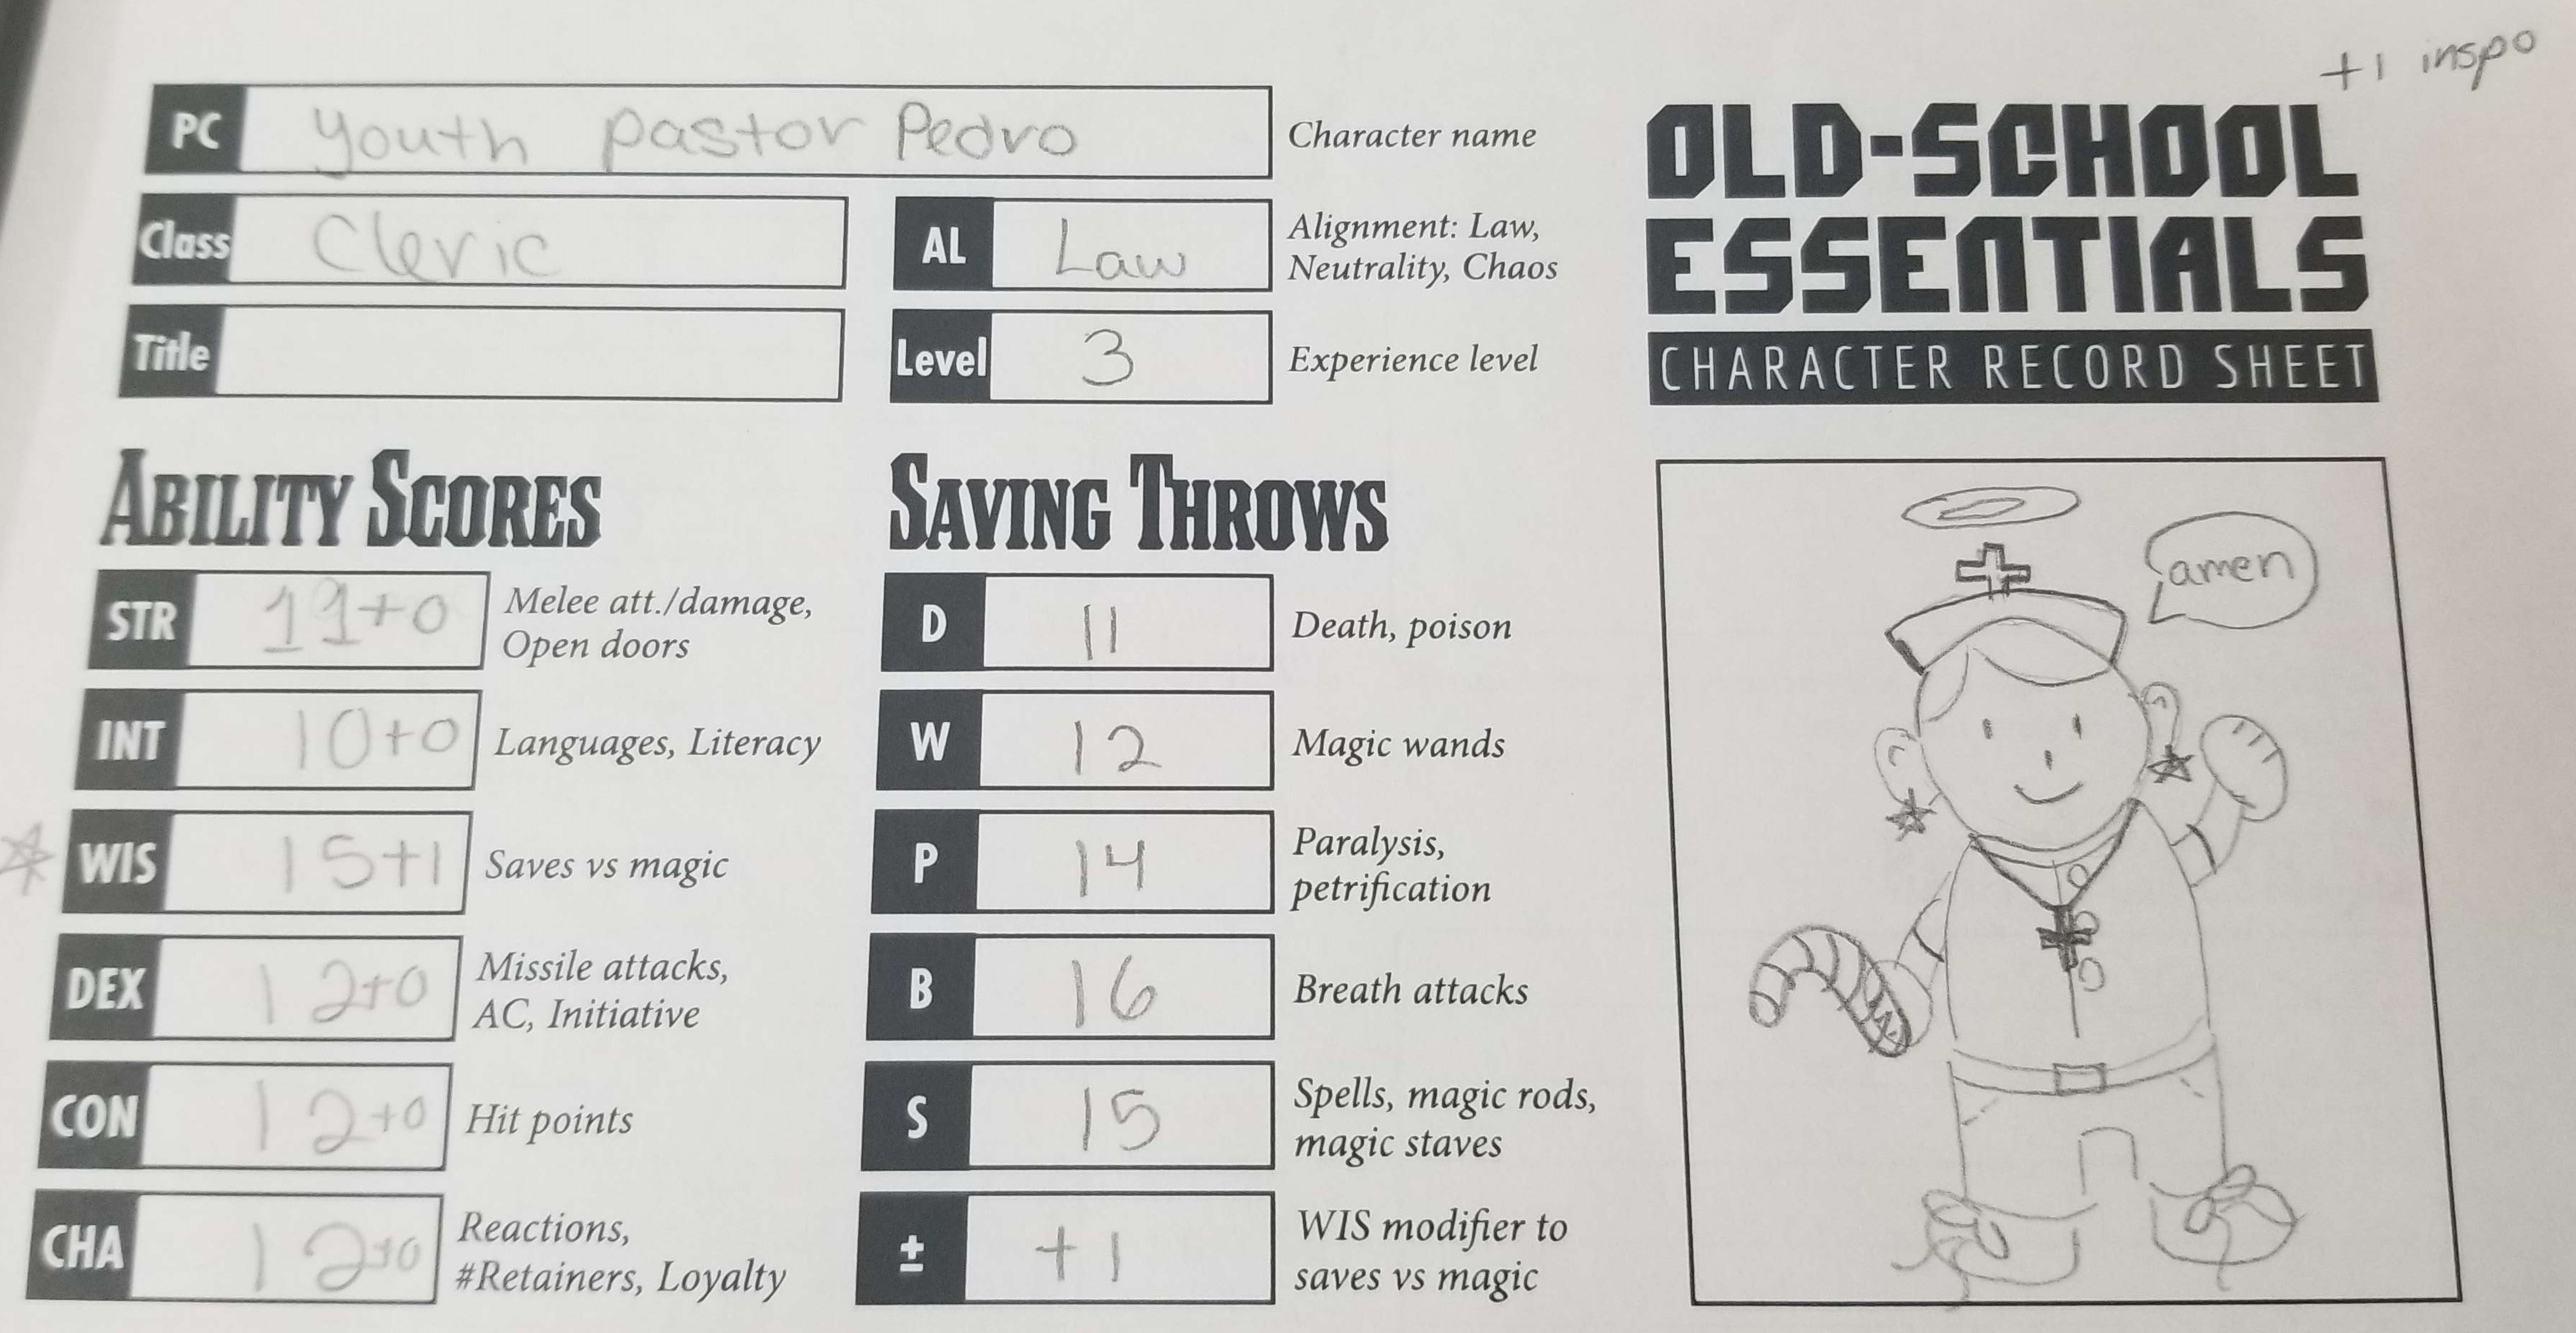 +1 inspo
PC youth pastor Pedro Character name
OLD-SCHOOL
ESSENTIALS
CHARACTER RECORD SHEET
Class Cleric
AL Law Alignment: Law,
Neutrality, Chaos
Title
Level 3 Experience level
ABILITY SCORES
STR 11+0 Melee att./damage,
Open doors
INT 10+0 Languages, Literacy
WIS 15+1 Saves vs magic
DEX 12+0 Missile attacks,
AC, Initiative
CON 12+0 Hit points
CHA 12+0 Reactions,
#Retainers, Loyalty
SAVING THROWS
D 11 Death, poison
W 12 Magic wands
P 14 Paralysis,
petrification
B 16 Breath attacks
S 15 Spells, magic rods,
magic staves
± +1 WIS modifier to
saves vs magic
amen